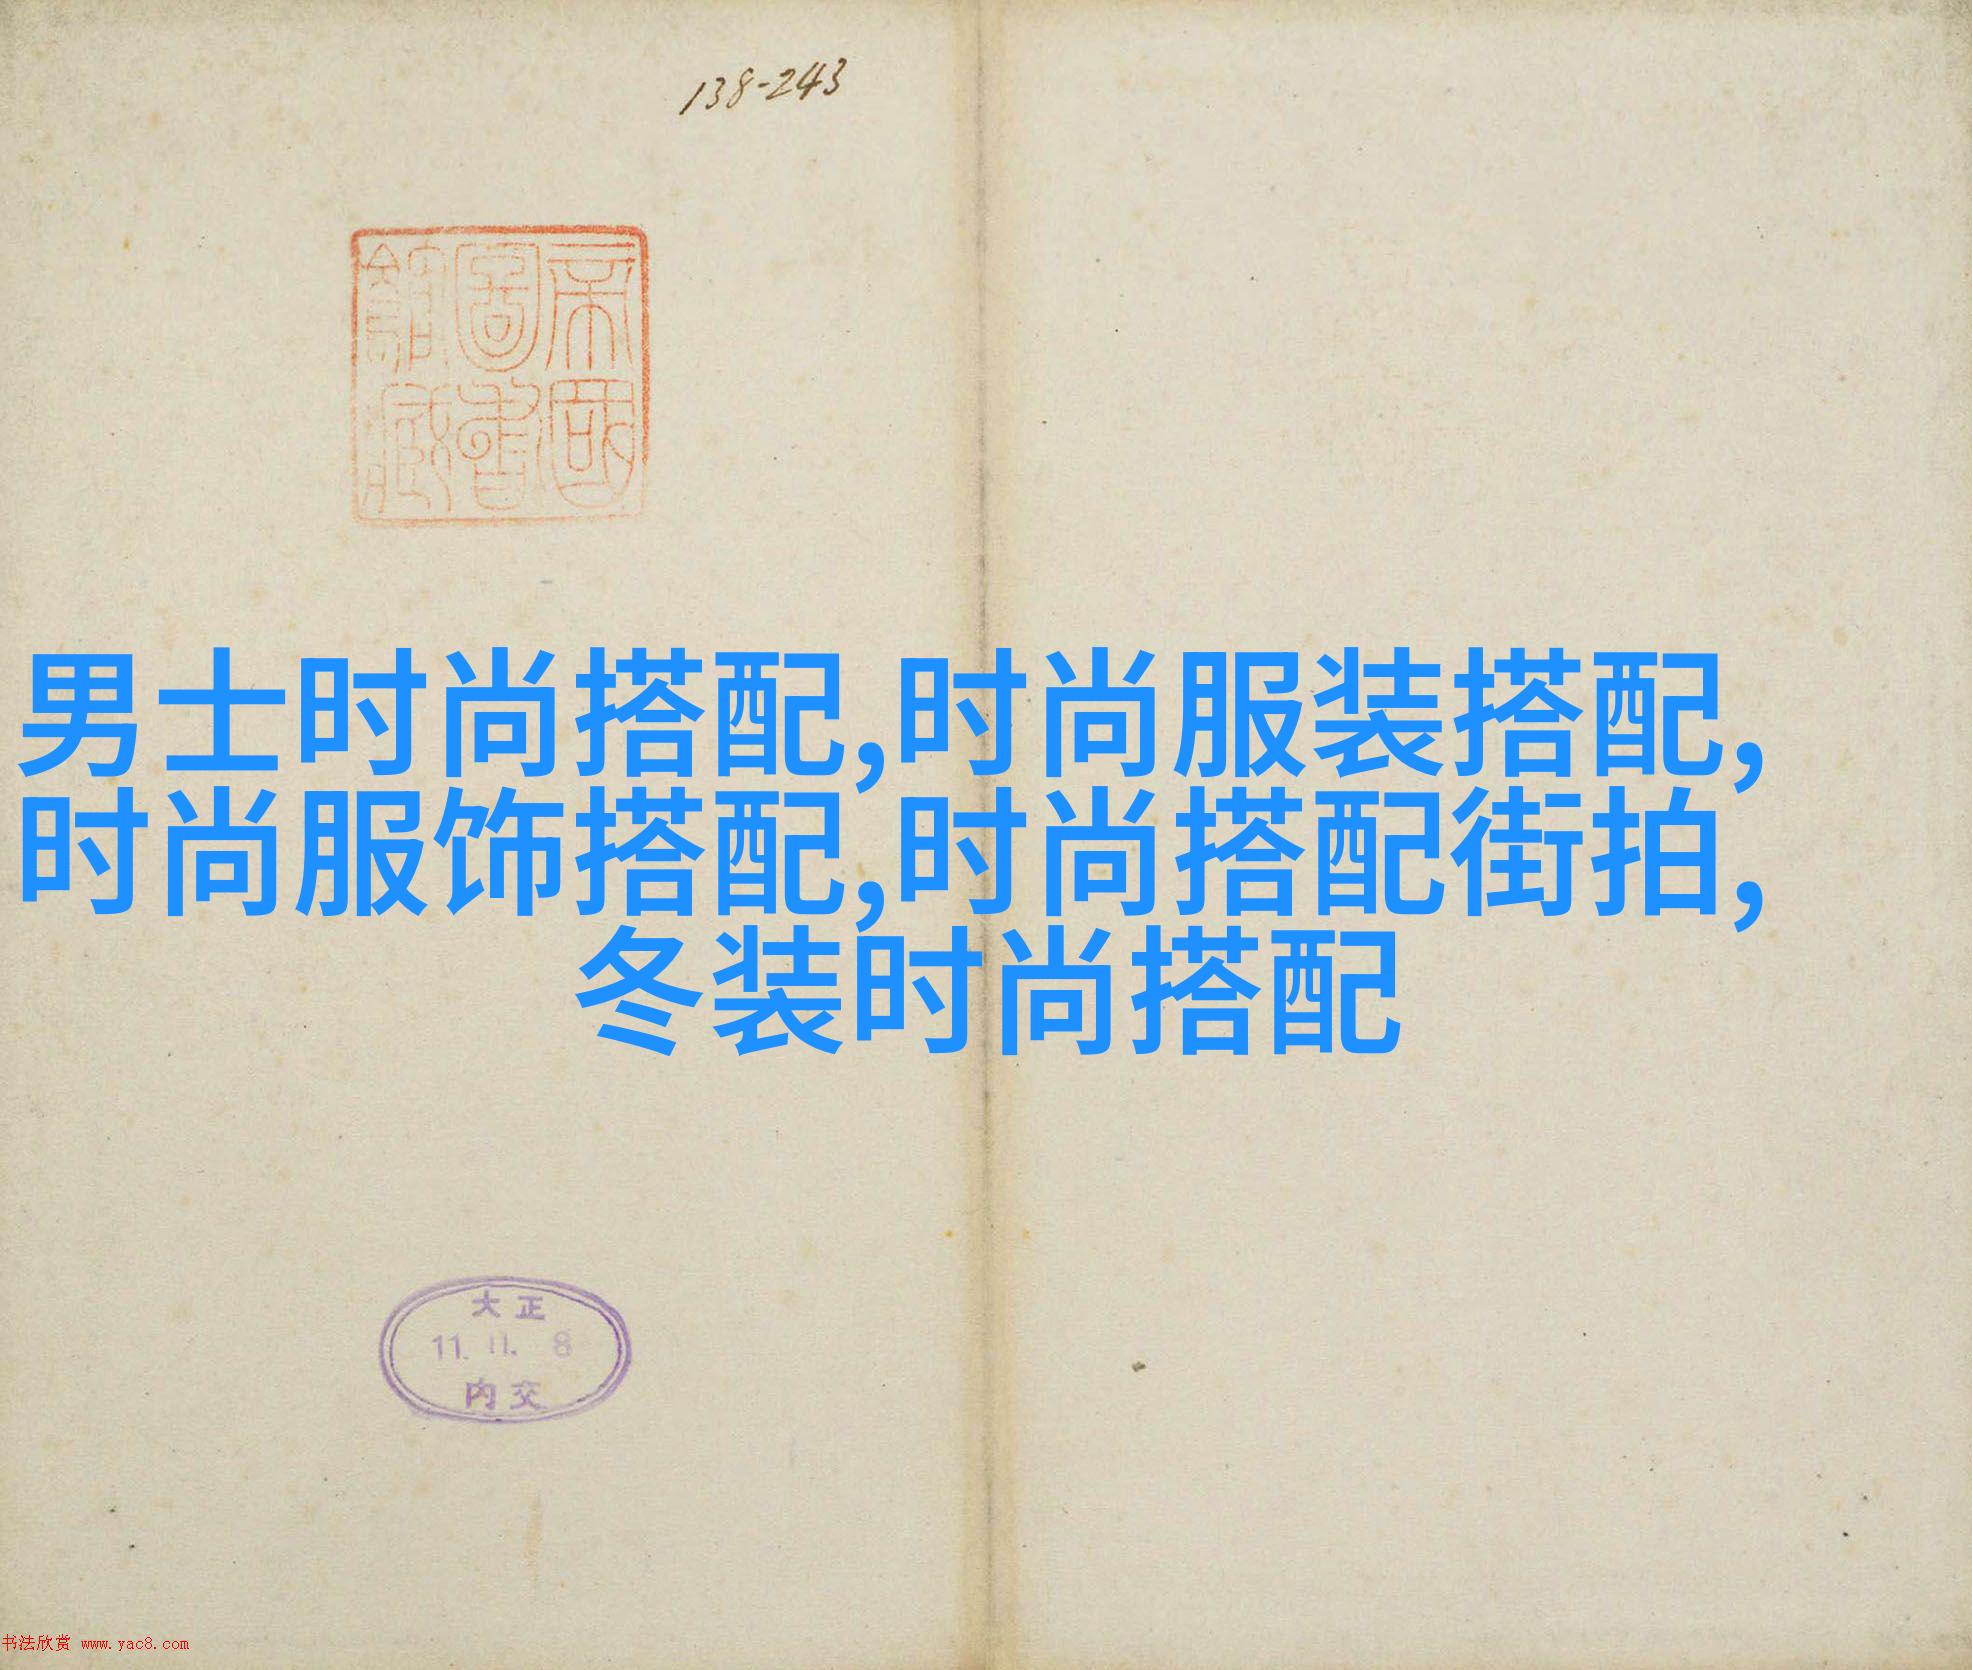 138-243
帝國
圖書
館藏
男士时尚搭配,时尚服装搭配,
时尚服饰搭配,时尚搭配街拍,
冬装时尚搭配
大正
11. 11. 8
内交
书法欣赏 www.yac8.com